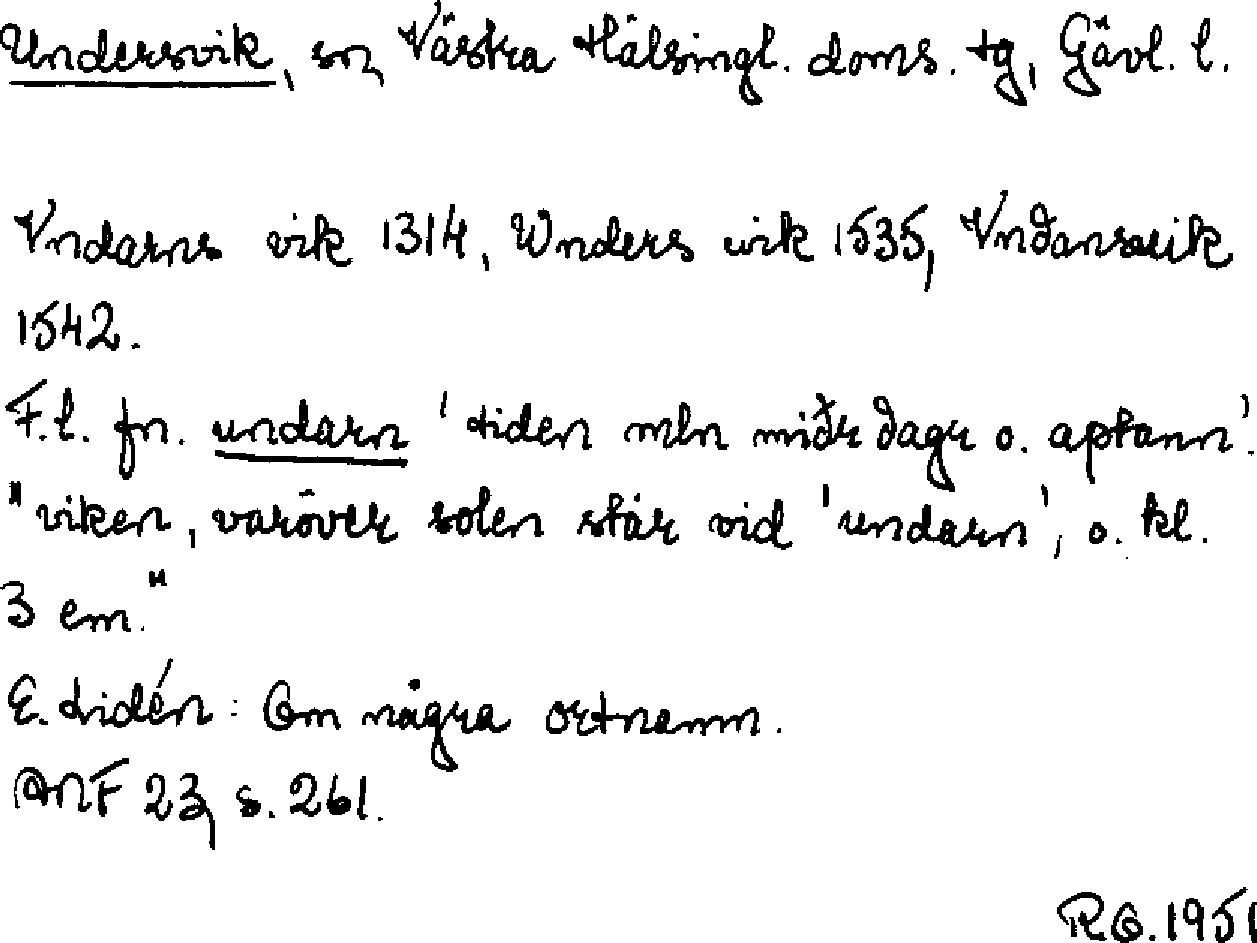 Undersvik, sn, Västra Hälsingl. doms. tg, Gävl. l.
Vndarns vik 1314, Wnders wik 1535, Vndansuik
1542.
F.l. fn. undarn 'tiden mln miðr dagr o. aptann'.
"viken, varöver solen står vid 'undarn', o. kl.
3 em."
E. Lidén: Om några ortnamn.
ANF 23, s. 261.
R.O. 1951